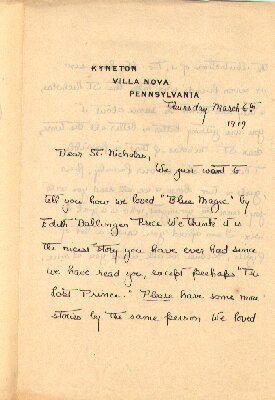 KYNETON
VILLA NOVA
PENNSYLVANIA
Thursday March 6th
1919
Dear St. Nicholas,
We just want to
tell you how we loved "Blue Magic" by
Edith Ballinger Price. We think it is
the nicest story you have ever had since
we have read you, except perhaps "The
Lost Prince." Please have some more
stories by the same person. We loved